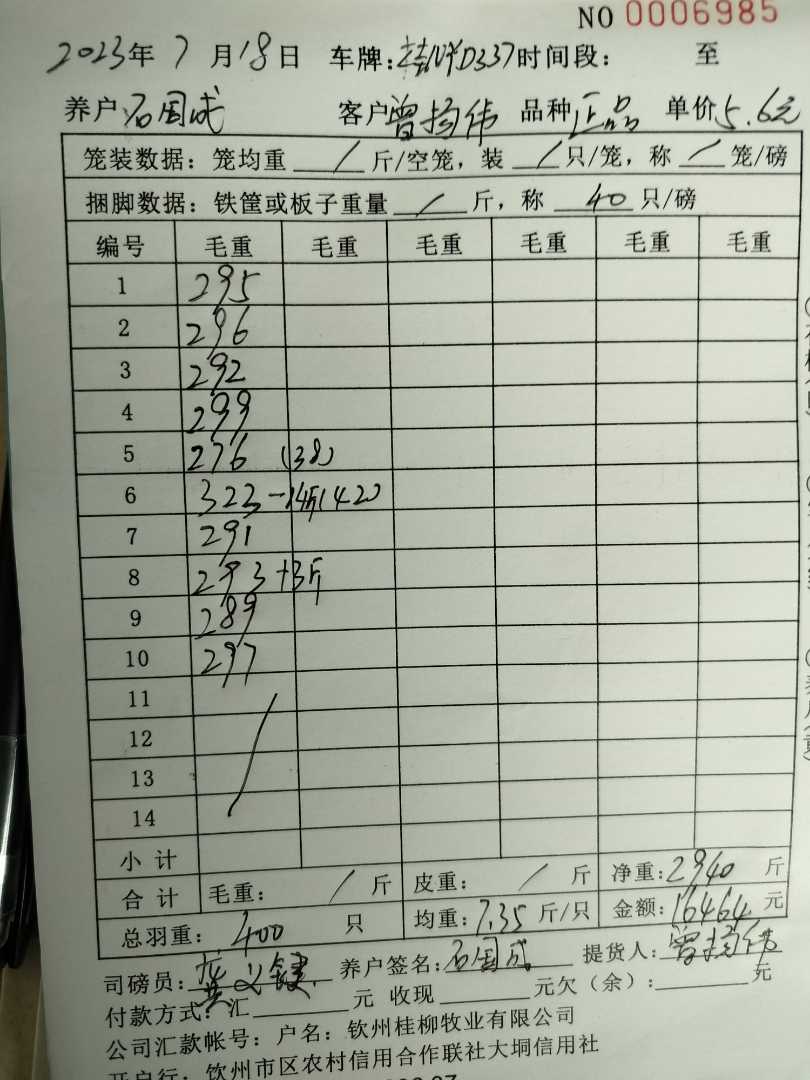 NO 0006985
2023年 7 月 18 日 车牌: D337 时间段: 至
养户 石国成 客户 曾扬伟 品种 正品 单价 5.6元
笼装数据: 笼均重 / 斤/空笼, 装 / 只/笼, 称 / 笼/磅
捆脚数据: 铁筐或板子重量 / 斤, 称 40 只/磅
编号 毛重 毛重 毛重 毛重 毛重 毛重
1 295
2 296
3 292
4 299
5 276 (38)
6 323 -14斤(42)
7 291
8 293 +3斤
9 289
10 297
11
12
13
14
小 计
合 计 毛重: / 斤 皮重: / 斤 净重: 2940 斤
总羽重: 400 只 均重: 7.35 斤/只 金额: 16464 元
司磅员: 养户签名: 石国成 提货人: 曾扬伟
付款方式: 汇 元 收现 元欠(余): 元
公司汇款帐号: 户名: 钦州桂柳牧业有限公司
开户行: 钦州市区农村信用合作联社大垌信用社